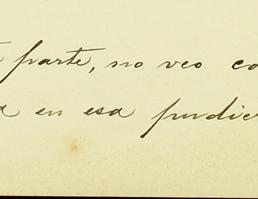 parte, no veo co
a en esa pudier